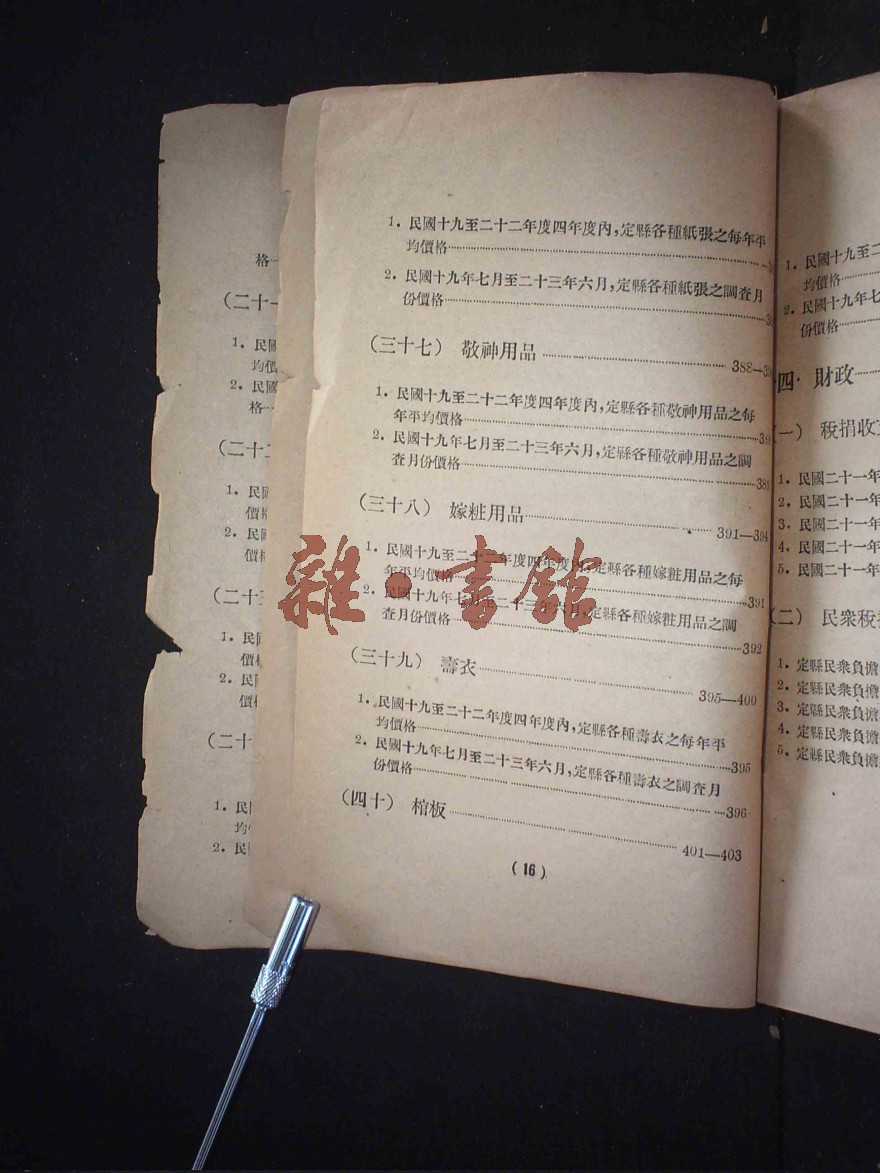 1. 民國十九至二十二年度四年度內,定縣各種紙張之每年平
均價格
2. 民國十九年七月至二十三年六月,定縣各種紙張之調查月
份價格
(三十七) 敬神用品 388—
1. 民國十九至二十二年度四年度內,定縣各種敬神用品之每
年平均價格
2. 民國十九年七月至二十三年六月,定縣各種敬神用品之調
查月份價格
(三十八) 嫁粧用品 391—394
1. 民國十九至二十二年度四年度內,定縣各種嫁粧用品之每
年平均價格 391
2. 民國十九年七月至二十三年六月,定縣各種嫁粧用品之調
查月份價格 392
(三十九) 壽衣 395—400
1. 民國十九至二十二年度四年度內,定縣各種壽衣之每年平
均價格 395
2. 民國十九年七月至二十三年六月,定縣各種壽衣之調查月
份價格 396
(四十) 棺板 401—403
(16)
雜·書館
格
(二十一
1. 民國
均價
2. 民國
格
(二十二
1. 民國
價格
2. 民
價格
(二十三
1. 民
價
2. 民
價格
(二十
1. 民
均
2. 民
1. 民國十九至二
均價格
2. 民國十九年七
份價格
四· 財政
(一) 稅捐收
1. 民國二十一年
2. 民國二十一年
3. 民國二十一年
4. 民國二十一年
5. 民國二十一年
(二) 民衆稅
1. 定縣民衆負擔
2. 定縣民衆負擔
3. 定縣民衆負擔
4. 定縣民衆負擔
5. 定縣民衆負擔